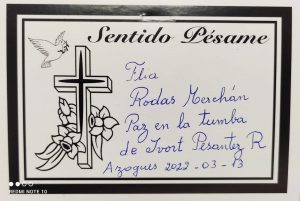 Sentido Pésame
Flia
Rodas Merchán
Paz en la tumba
de Ivort Pesantez R
Azogues 2022-03-13
REDMI NOTE 10